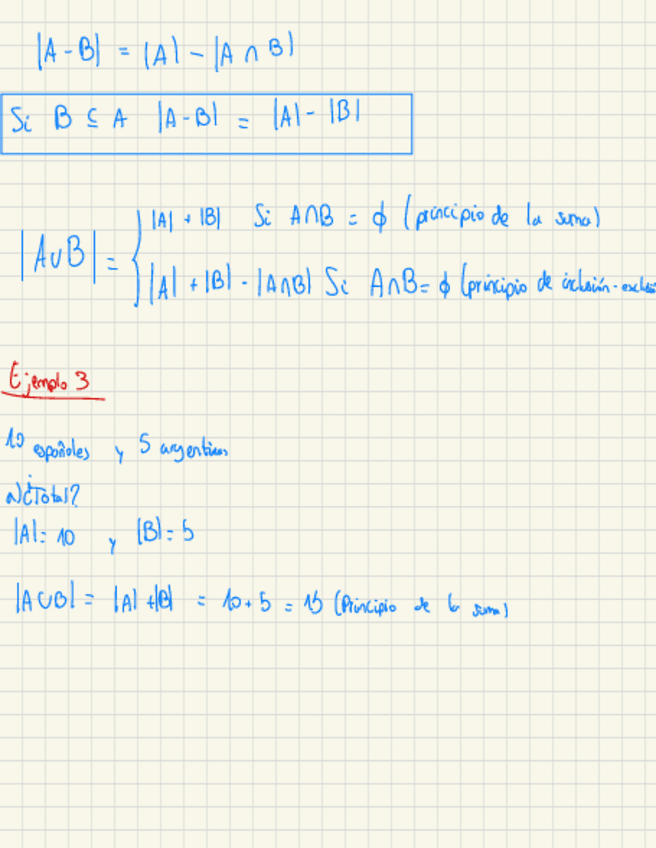 |A-B| = |A| - |A ∩ B|
Si B ⊆ A |A-B| = |A| - |B|
|A∪B| = { |A| + |B| Si A∩B = ϕ (principio de la suma)
|A| + |B| - |A∩B| Si A∩B = ϕ (principio de inclusión-
Ejemplo 3
10 españoles y 5 argentinos
a) ¿Total?
|A| = 10 y |B| = 5
|A∪B| = |A| + |B| = 10 + 5 = 15 (Principio de la suma)